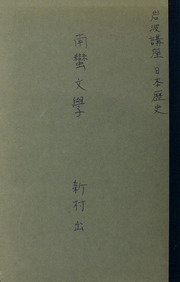 岩波講座 日本歴史
南蛮文學
新村出